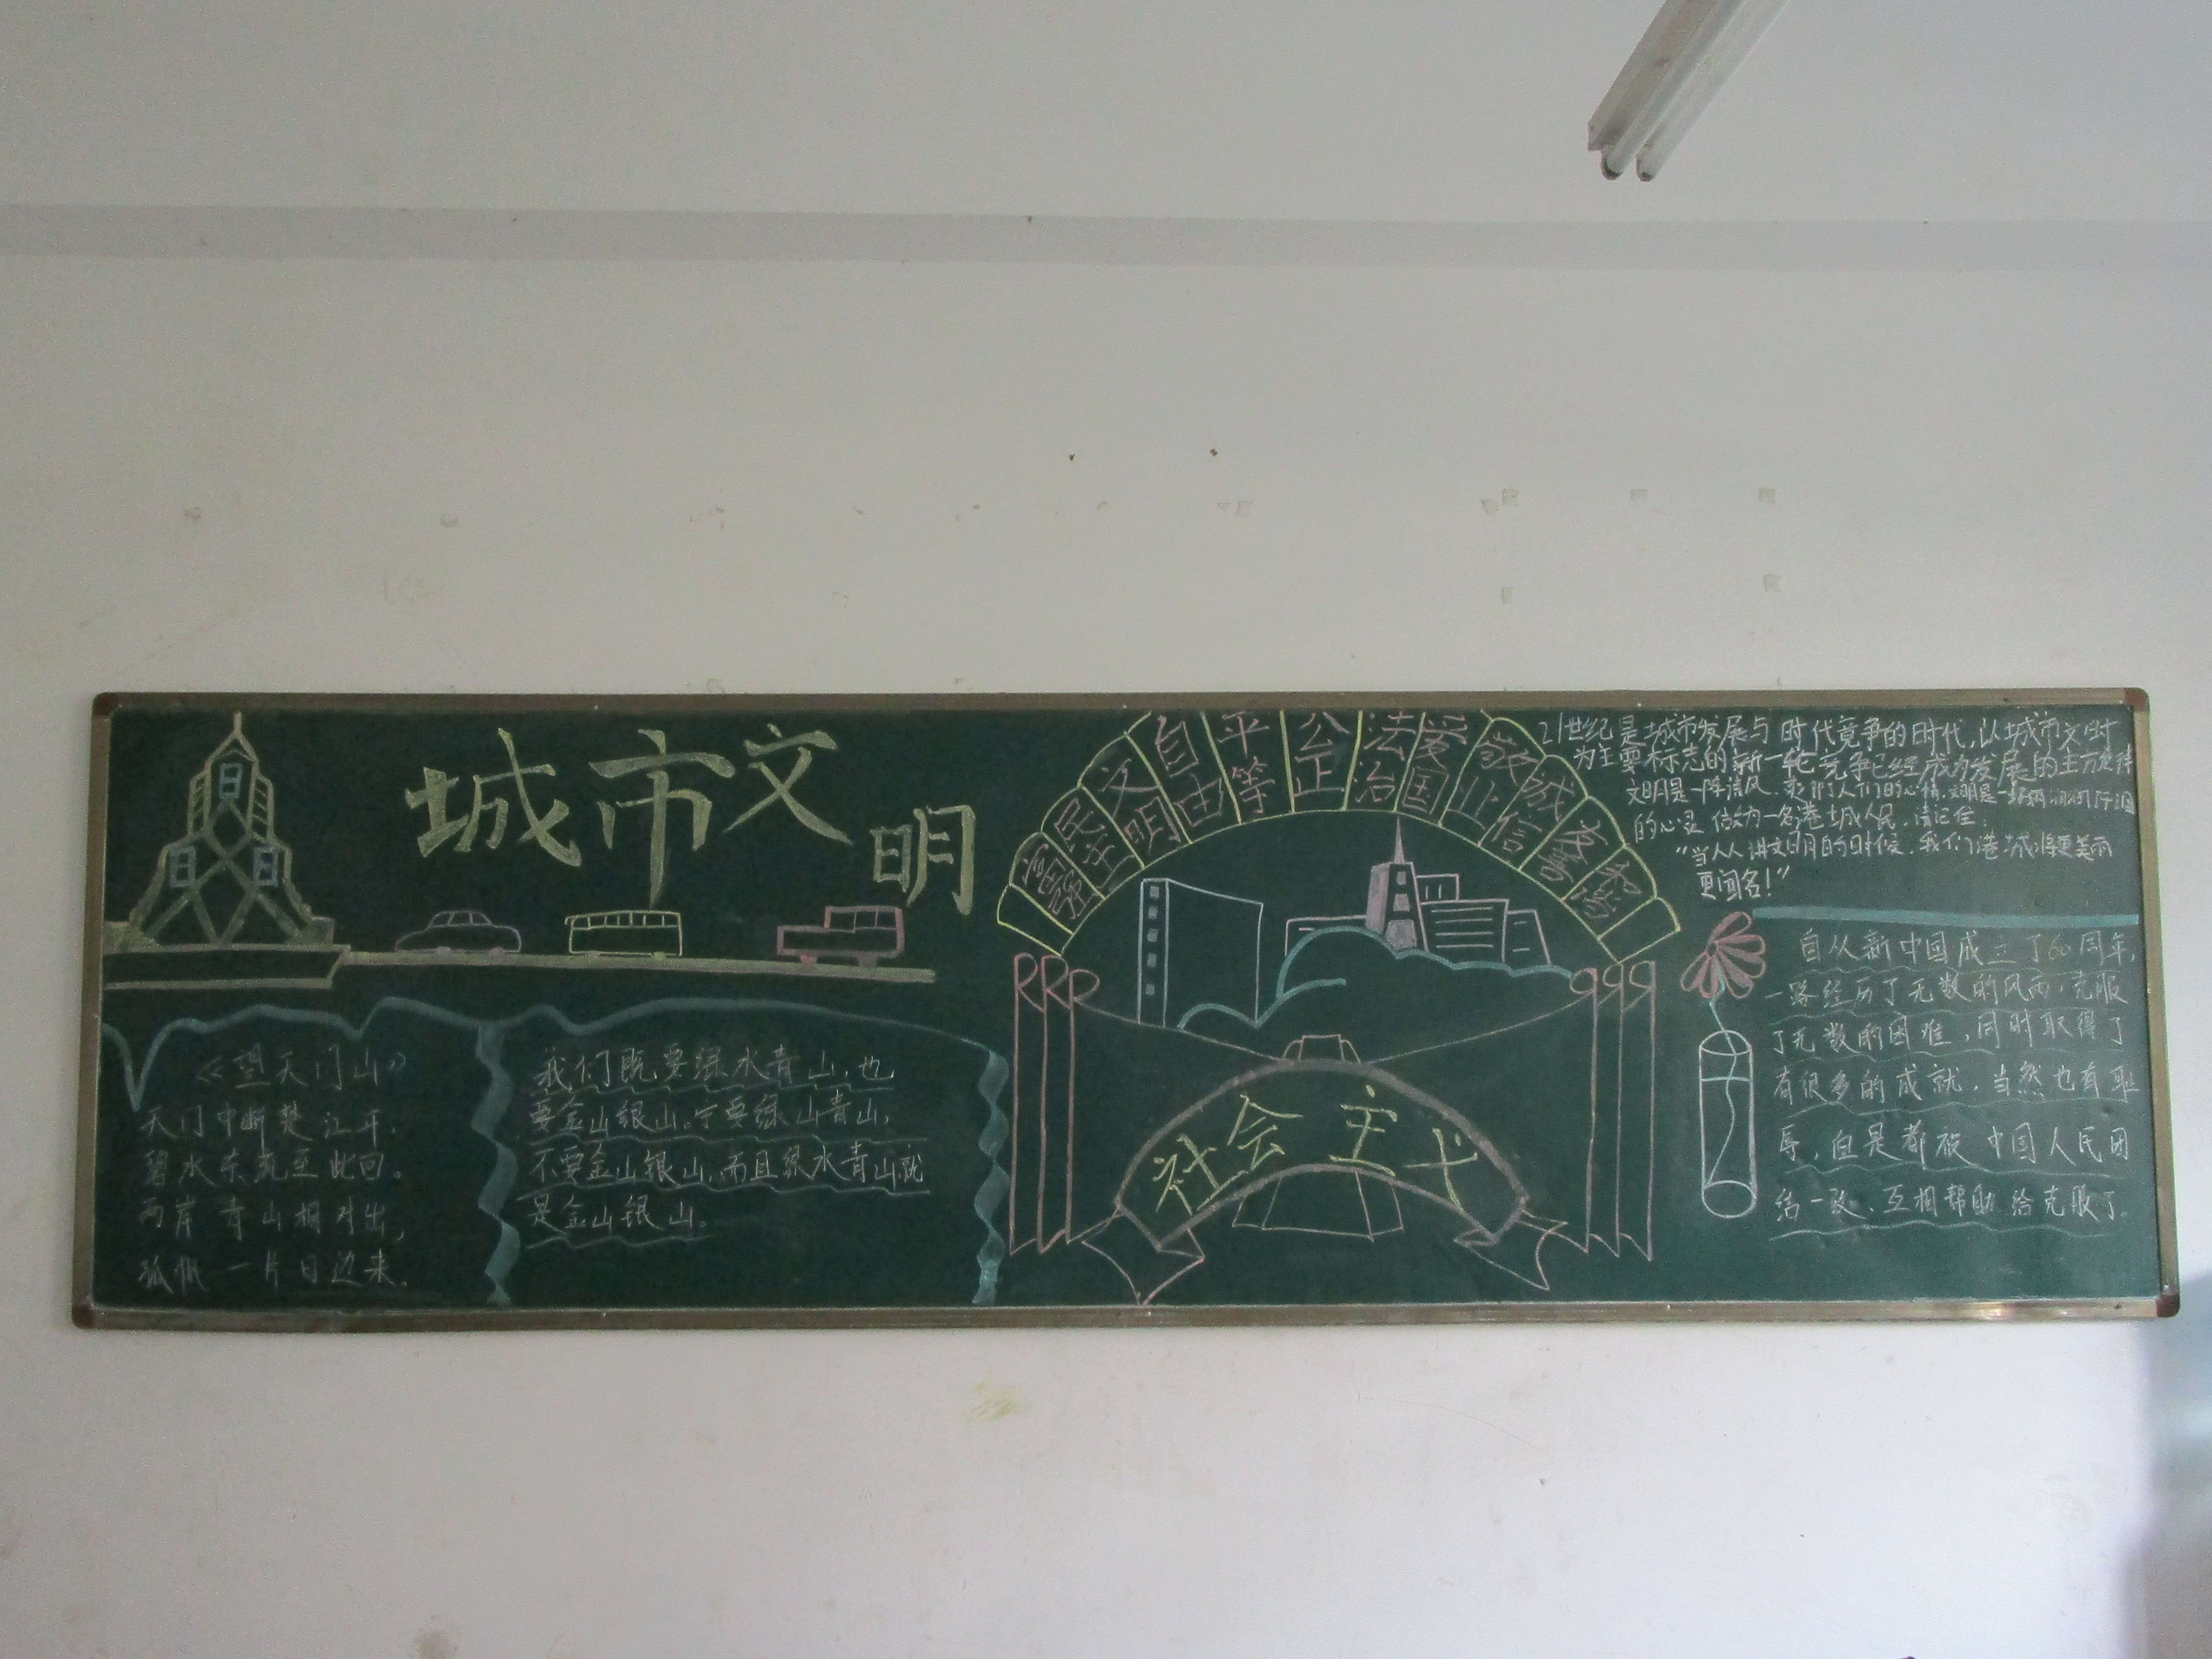 城市文明
《望天门山》
天门中断楚江开，
碧水东流至此回。
两岸青山相对出，
孤帆一片日边来.
我们既要绿水青山，也
要金山银山。宁要绿山青山，
不要金山银山，而且绿水青山就
是金山银山。
富强
民主
文明
自由
平等
公正
法治
爱国
敬业
诚信
友善
和谐
社会主义
21世纪是城市发展与时代竞争的时代，以城市文明
为主要标志的新一轮竞争已经成为发展的主方旋律
文明是一阵清风，
的心灵 做为一名港城人民，请记住：
“当人人讲文明的时候，我们港城将更美丽
更闻名！”
自从新中国成立了60周年，
一路经历了无数的风雨，克服
了无数的困难，同时取得了
有很多的成就，当然也有耻
辱，但是都被中国人民团
结一致、互相帮助给克服了.